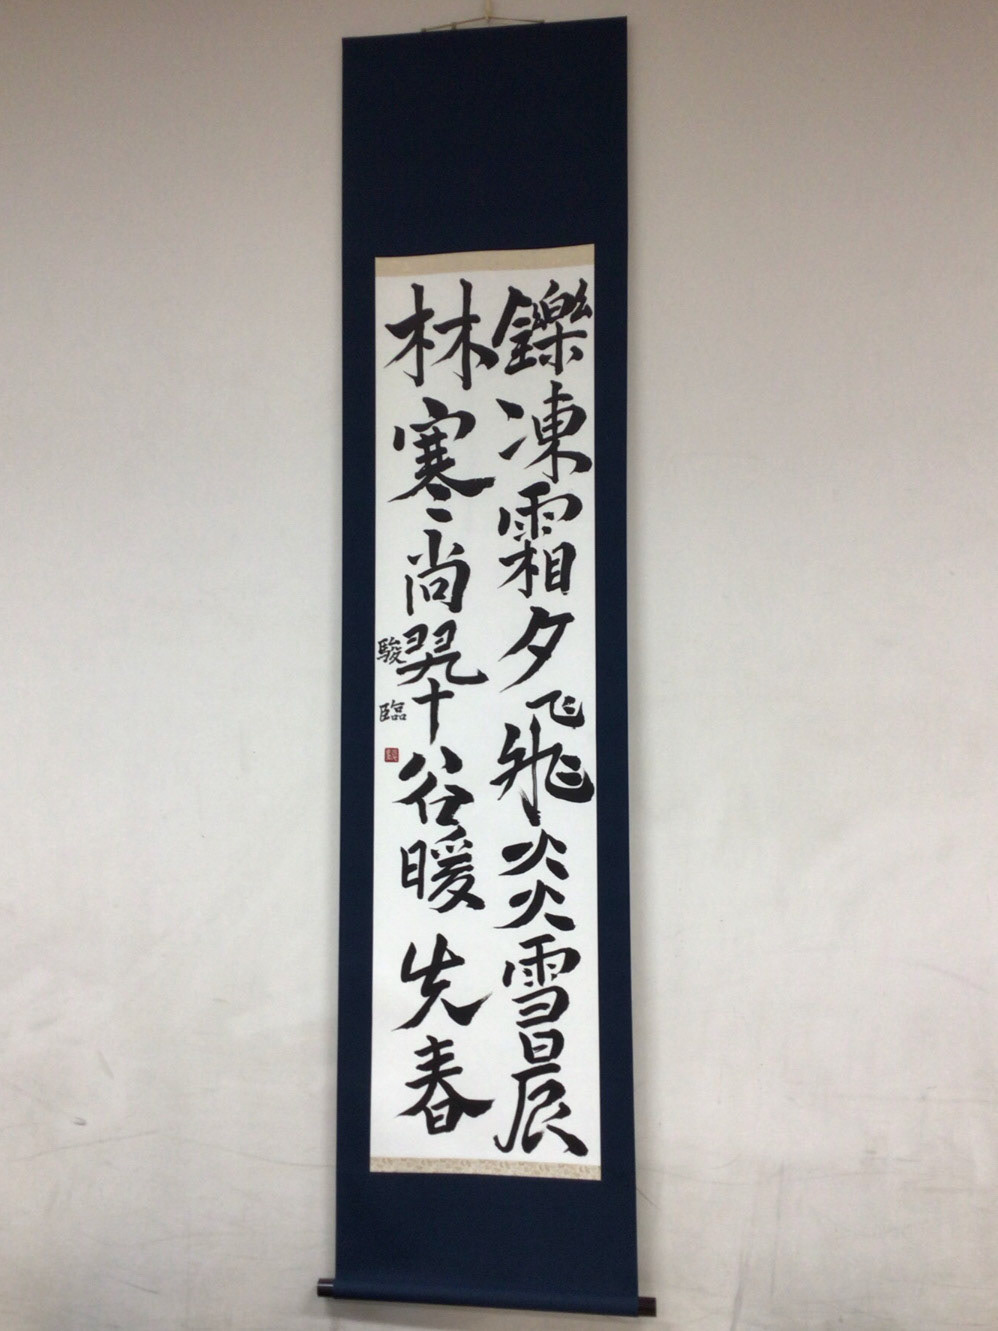 鑠凍霜夕飛炎雪晨
林寒尚翠谷暖先春
駿臨